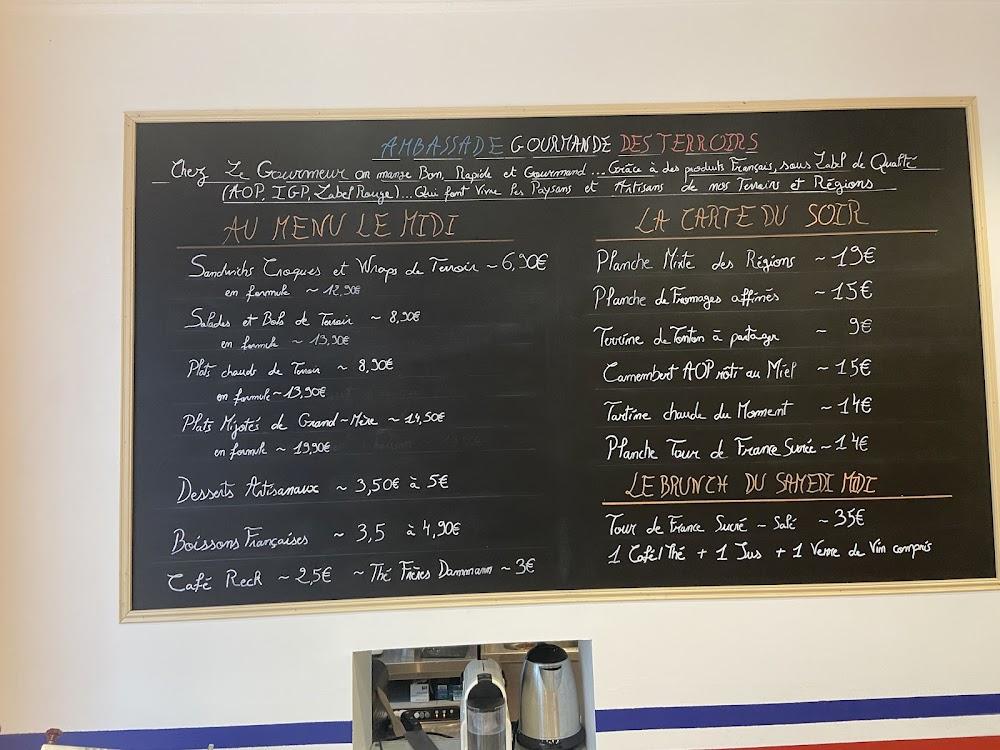 AMBASSADE GOURMANDE DES TERROIRS
Chez Le Gourmeur on mange Bon, Rapide et Gourmand... Grâce à des produits Français, sous Label de Qualité
(AOP, IGP, Label Rouge)... Qui font Vivre les Paysans et Artisans de nos Terroirs et Régions
AU MENU LE MIDI
Sandwichs Croques et Wraps de Terroir ~ 6,90€
en formule ~ 12,90€
Salades et Bols de Terroir ~ 8,90€
en formule ~ 13,90€
Plats chauds de Terroir ~ 8,90€
en formule ~ 13,90€
Plats Mijotés de Grand-Mère ~ 14,50€
en formule ~ 19,90€
Desserts Artisanaux ~ 3,50€ à 5€
Boissons Françaises ~ 3,5 à 4,90€
Café Reck ~ 2,5€ ~ Thé Frères Dammann ~ 3€
LA CARTE DU SOIR
Planche Mixte des Régions ~ 19€
Planche de Fromages affinés ~ 15€
Terrine de Tonton à partager ~ 9€
Camembert AOP rôti au Miel ~ 15€
Tartine chaude du Moment ~ 14€
Planche Tour de France Sucrée ~ 14€
LE BRUNCH DU SAMEDI MIDI
Tour de France Sucré - Salé ~ 35€
1 Café/Thé + 1 Jus + 1 Verre de Vin compris